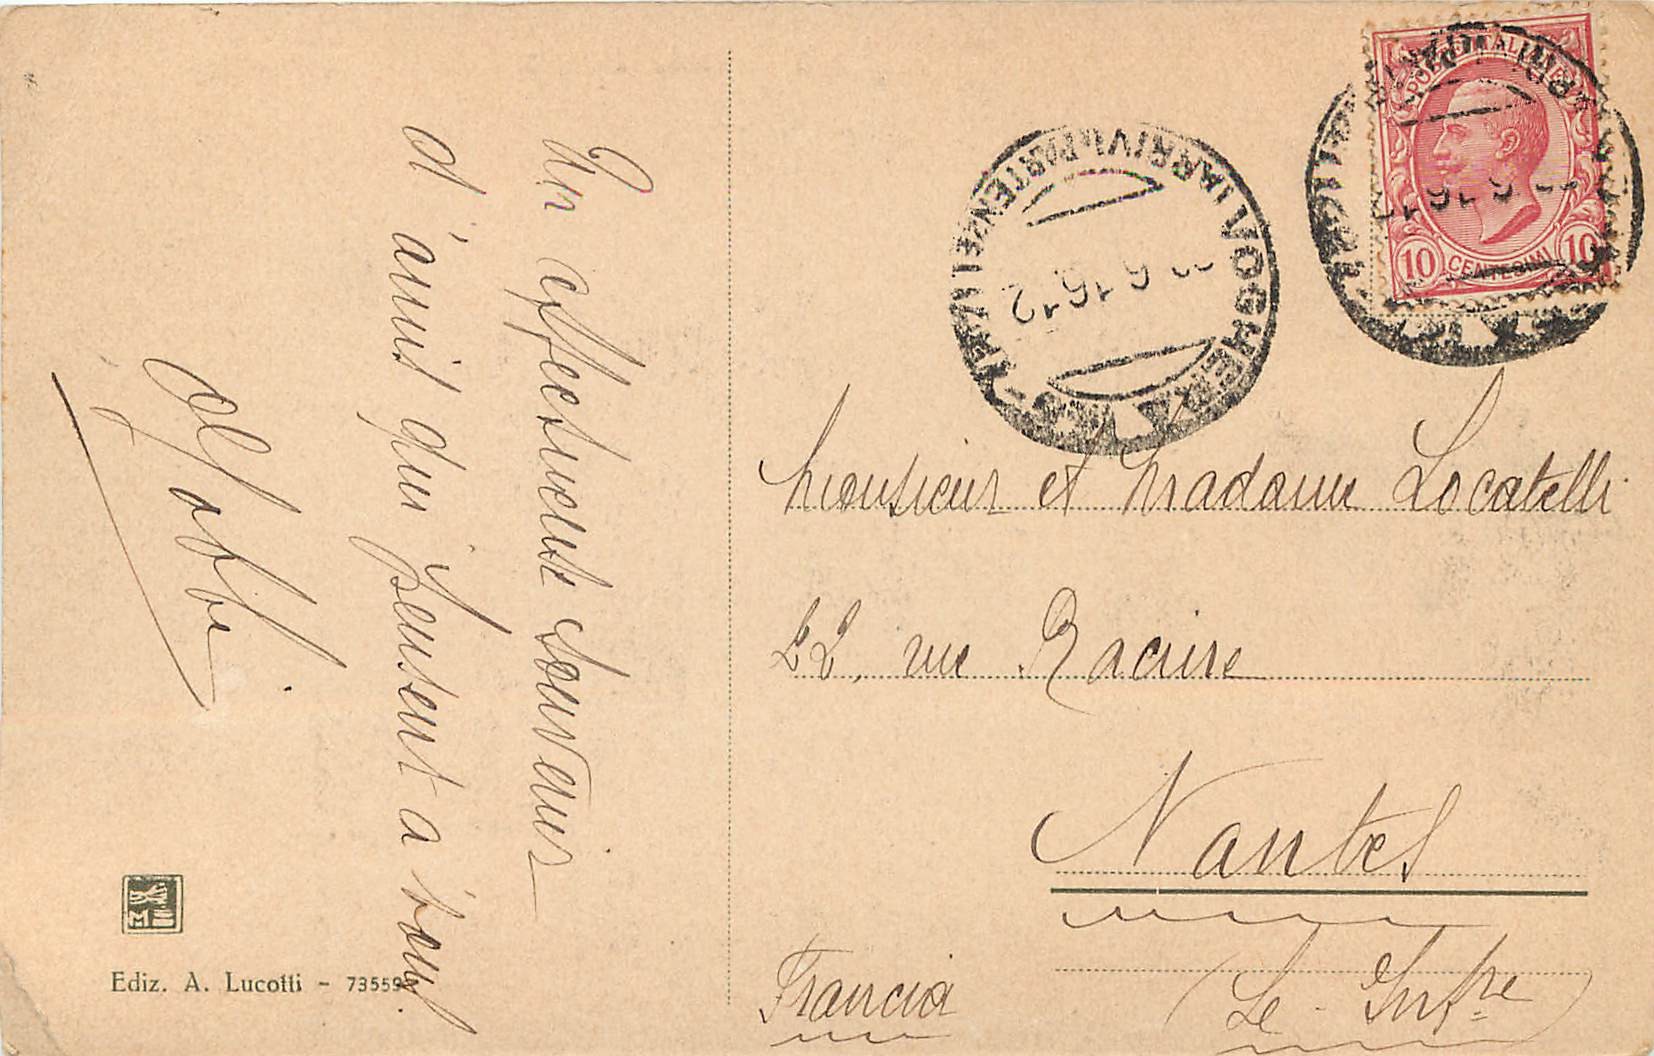 Un affectueux souvenir
d'amis qui pensent à vous
POSTE ITALIANE
10 CENTESIMI 10
VOGHERA
ARRIVI E PARTENZE
6.16.12
Monsieur et Madame Locatelli
22, rue Racine
Nantes
Francia
(Le Infre)
M
Ediz. A. Lucotti - 73559